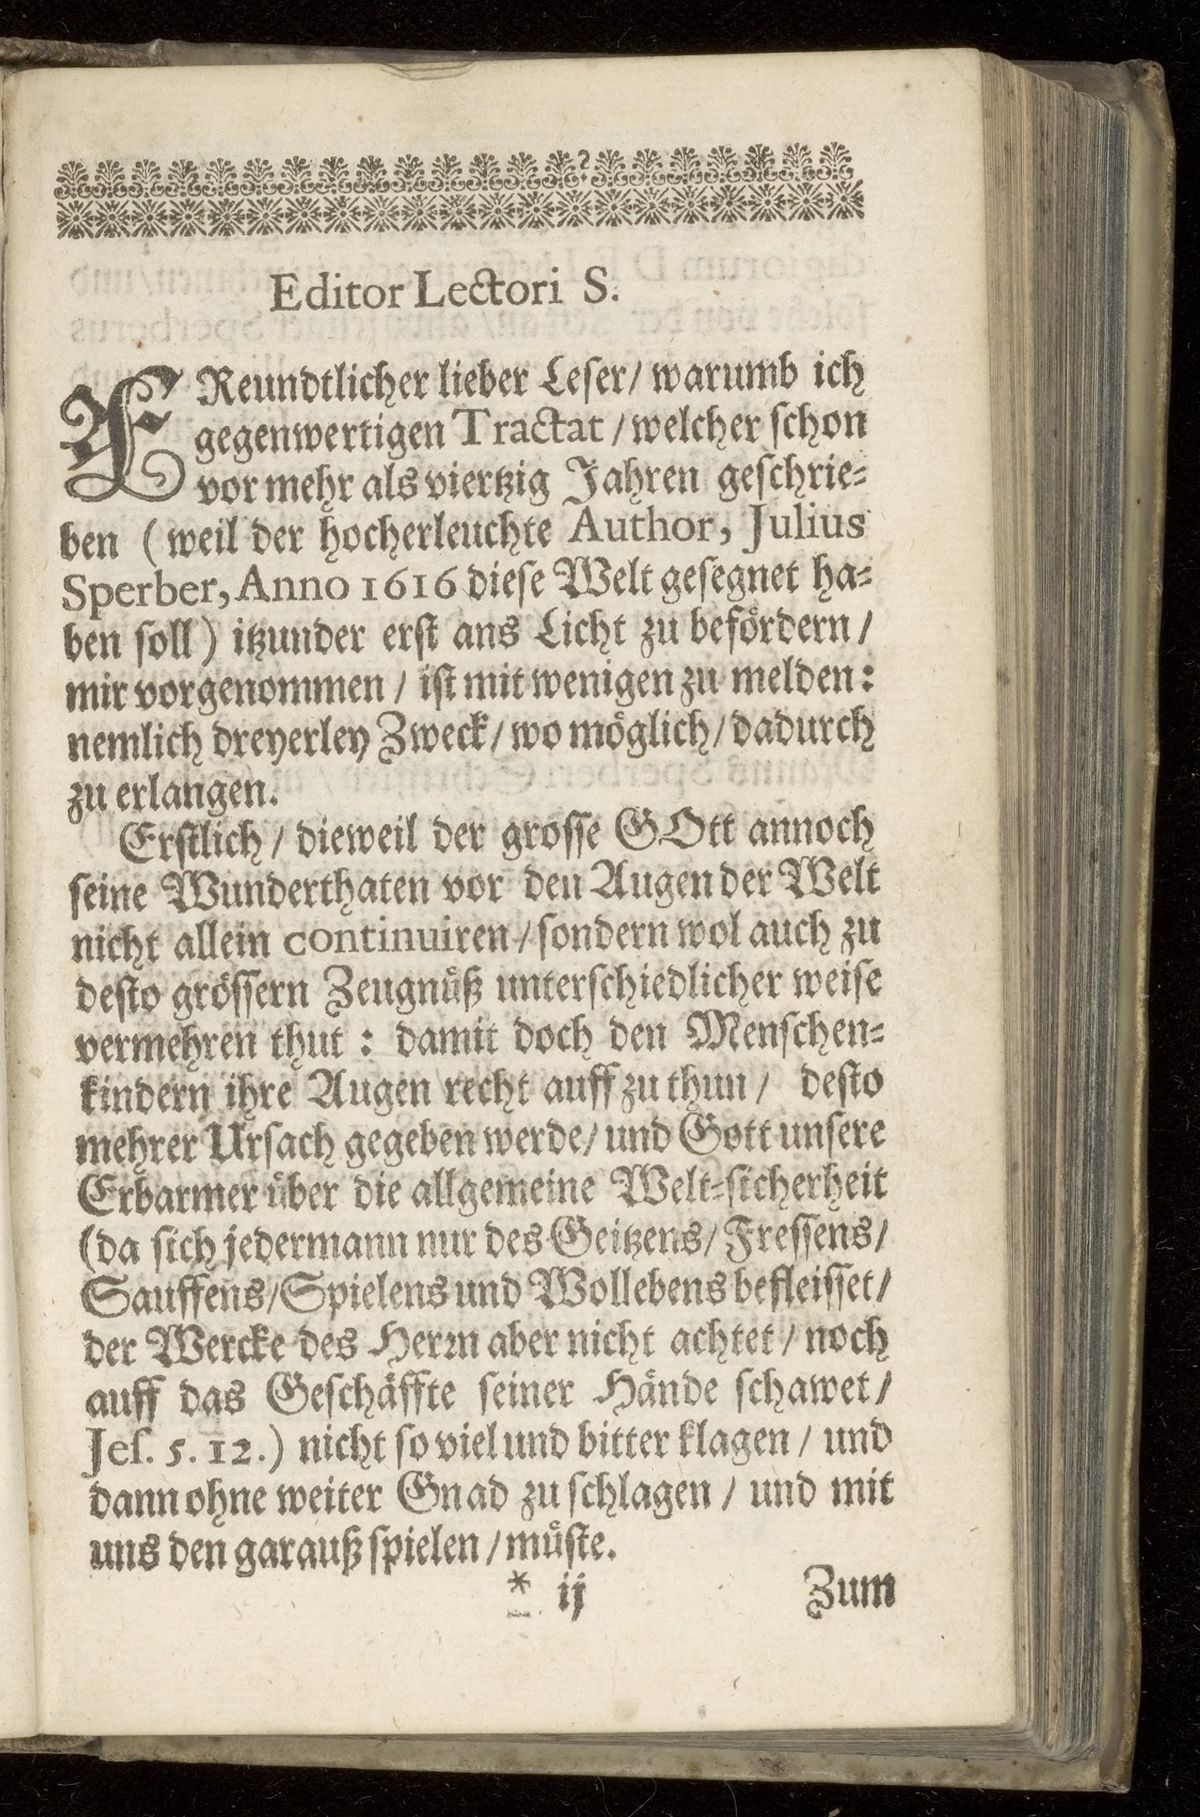 Editor Lectori S.
FReundtlicher lieber Leser/ warumb ich
gegenwertigen Tractat / welcher schon
vor mehr als viertzig Jahren geschrie-
ben ( weil der hocherleuchte Author, Julius
Sperber, Anno 1616 diese Welt gesegnet ha-
ben soll ) itzunder erst ans Licht zu befördern /
mir vorgenommen / ist mit wenigen zu melden :
nemlich dreyerley Zweck / wo möglich / dadurch
zu erlangen.
Erstlich / dieweil der grosse GOtt annoch
seine Wunderthaten vor den Augen der Welt
nicht allein continuiren / sondern wol auch zu
desto grössern Zeugnüß unterschiedlicher weise
vermehren thut : damit doch den Menschen-
kindern ihre Augen recht auff zu thun / desto
mehrer Ursach gegeben werde / und Gott unsere
Erbarmer über die allgemeine Welt-sicherheit
(da sich jedermann nur des Geitzens / Fressens /
Sauffens / Spielens und Wollebens befleisset /
der Wercke des Herrn aber nicht achtet / noch
auff das Geschäffte seiner Hände schawet /
Jes. 5. 12.) nicht so viel und bitter klagen / und
dann ohne weiter Gnad zu schlagen / und mit
uns den garauß spielen / müste.
* ij Zum